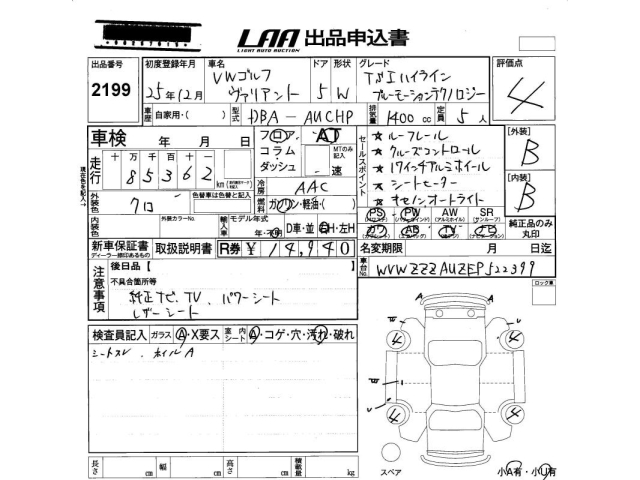 LAA 出品申込書
LIGHT AUTO AUCTION
出品番号 2199
初度登録年月 25年12月
車名 VWゴルフ ヴァリアント
ドア 5
形状 W
グレード TSIハイライン ブルーモーションテクノロジー
評価点 4
車歴 自家用・( )
型式 DBA-AUCHP
排気量 1400 cc
定員 5人
車検 年 月 日
フロア AT
コラム・ダッシュ
MTのみ記入 速
セールスポイント
★ルーフレール
★クルーズコントロール
★17インチアルミホイール
★シートヒーター
★キセノンオートライト
【外装】 B
【内装】 B
走行 十 万 千 百 十 一
85362 km
冷房 AAC
外装色 クロ
外装カラーNo.
色替車は色替と記入
燃料 ガソリン・軽油・( )
輸入車 モデル年式 年・不明
D車・並 右H・左H
PS PW AW SR
カワ AB TV ナビ
純正品のみ丸印
新車保証書 取扱説明書 R券 ¥14,940
ディーラー捺印あるもの
名変期限 月 日迄
車台No. WVWZZZAUZEP522399
注意事項
後日品【
不具合箇所等
純正ナビ、TV、パワーシート
レザーシート
ロック車
検査員記入 ガラス A・X要ス 室内シート A・コゲ・穴・汚れ・破れ
シートスレ、ホイルA
4 4
4 4
スペア
小A有・小U有
長さ cm 幅 cm 高さ cm 積載量 kg